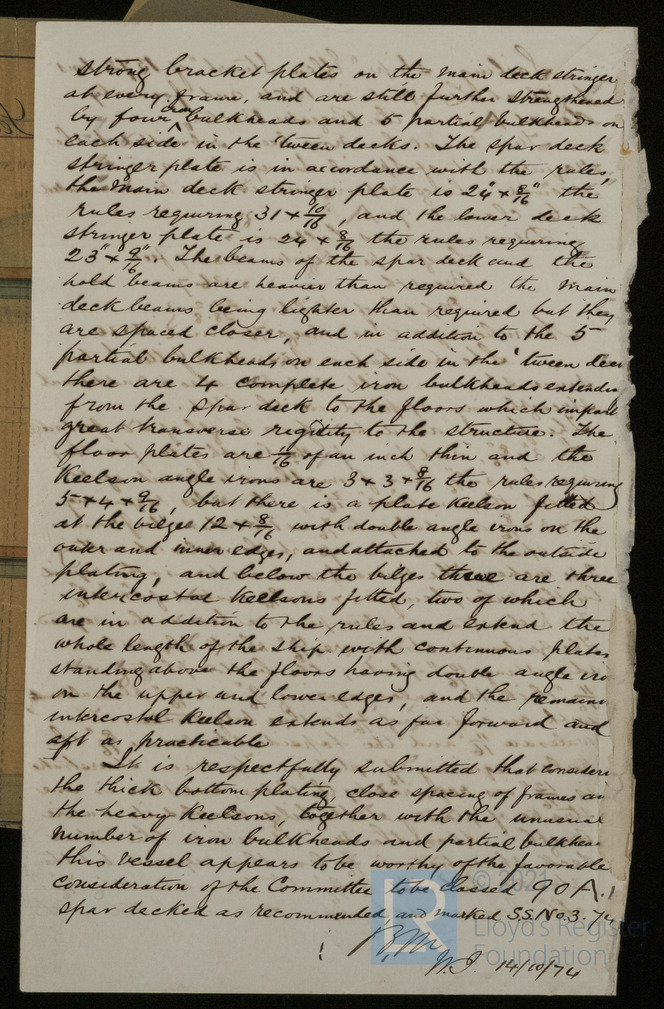 strong bracket plates on the main deck stringer
at every frame, and are still further strengthened
by four iron bulkheads and 5 partial bulkheads on
each side in the 'tween decks. The spar deck
stringer plate is in accordance with the rules,
the main deck stringer plate is 24" x 8/16" the
rules requiring 31 x 10/16, and the lower deck
stringer plate is 24 x 8/16 the rules requiring
23" x 9/16". The beams of the spar deck and the
hold beams are heavier than required the main
deck beams being lighter than required but they
are spaced closer, and in addition to the 5
partial bulkheads on each side in the 'tween deck
there are 4 complete iron bulkheads extendin
from the spar deck to the floors which impart
great transverse rigitity to the structure. The
floor plates are 1/16 of an inch thin and the
Keelson angle irons are 3 x 3 x 8/16 the rules requiring
5 x 4 x 9/16, but there is a plate keelson fitted
at the bilges 12 x 8/16 with double angle irons on the
outer and inner edges, and attached to the outside
plating, and below the bilges there are three
intercostal keelsons fitted, two of which
are in addition to the rules and extend the
whole length of the ship with continuous plates
standing above the floors having double angle iro
on the upper and lower edges, and the remaini
intercostal keelson extends as far forward and
aft as practicable
It is respectfully submitted that consideri
the thick bottom plating, close spacing of frames an
the heavy keelsons, together with the unusual
number of iron bulkheads and partial bulkhea
this vessel appears to be worthy of the favorable
consideration of the Committee to be classed 90 A.1
spar decked as recommended, and marked S.S. No. 3. 74
W.J. 14/10/74
© 2021
Lloyd's Register
Foundation